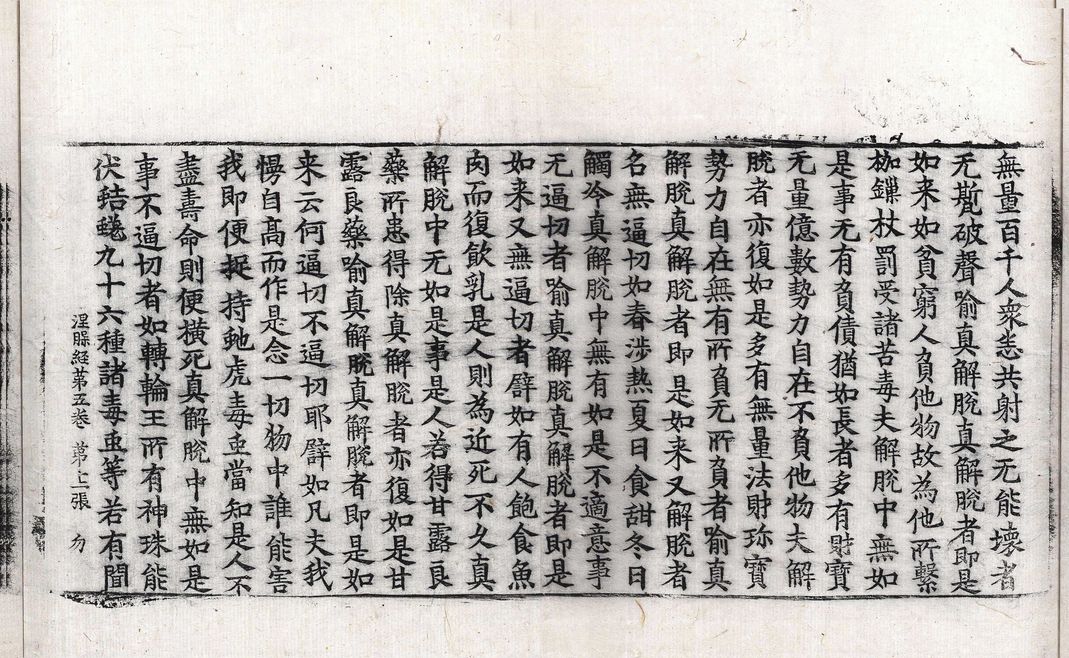 無量百千人衆悉共射之无能壞者
无㽄破聲喻真解脫真解脫者即是
如来如貧窮人負他物故為他所繫
枷鏁杖罰受諸苦毒夫解脫中無如
是事无有負債猶如長者多有財寶
无量億數勢力自在不負他物夫解
脫者亦復如是多有無量法財珎寶
勢力自在無有所負无所負者喻真
解脫真解脫者即是如来又解脫者
名無逼切如春涉熱夏日食甜冬日
觸冷真解脫中無有如是不適意事
无逼切者喻真解脫真解脫者即是
如来又無逼切者譬如有人飽食魚
肉而復飲乳是人則為近死不久真
解脫中无如是事是人若得甘露良
藥所患得除真解脫者亦復如是甘
露良藥喻真解脫真解脫者即是如
来云何逼切不逼切耶譬如凡夫我
慢自高而作是念一切物中誰能害
我即便捉持虵虎毒虫當知是人不
盡壽命則便橫死真解脫中無如是
事不逼切者如轉輪王所有神珠能
伏蛣蜣九十六種諸毒虫等若有聞
涅槃经第五卷 第十二張 勿